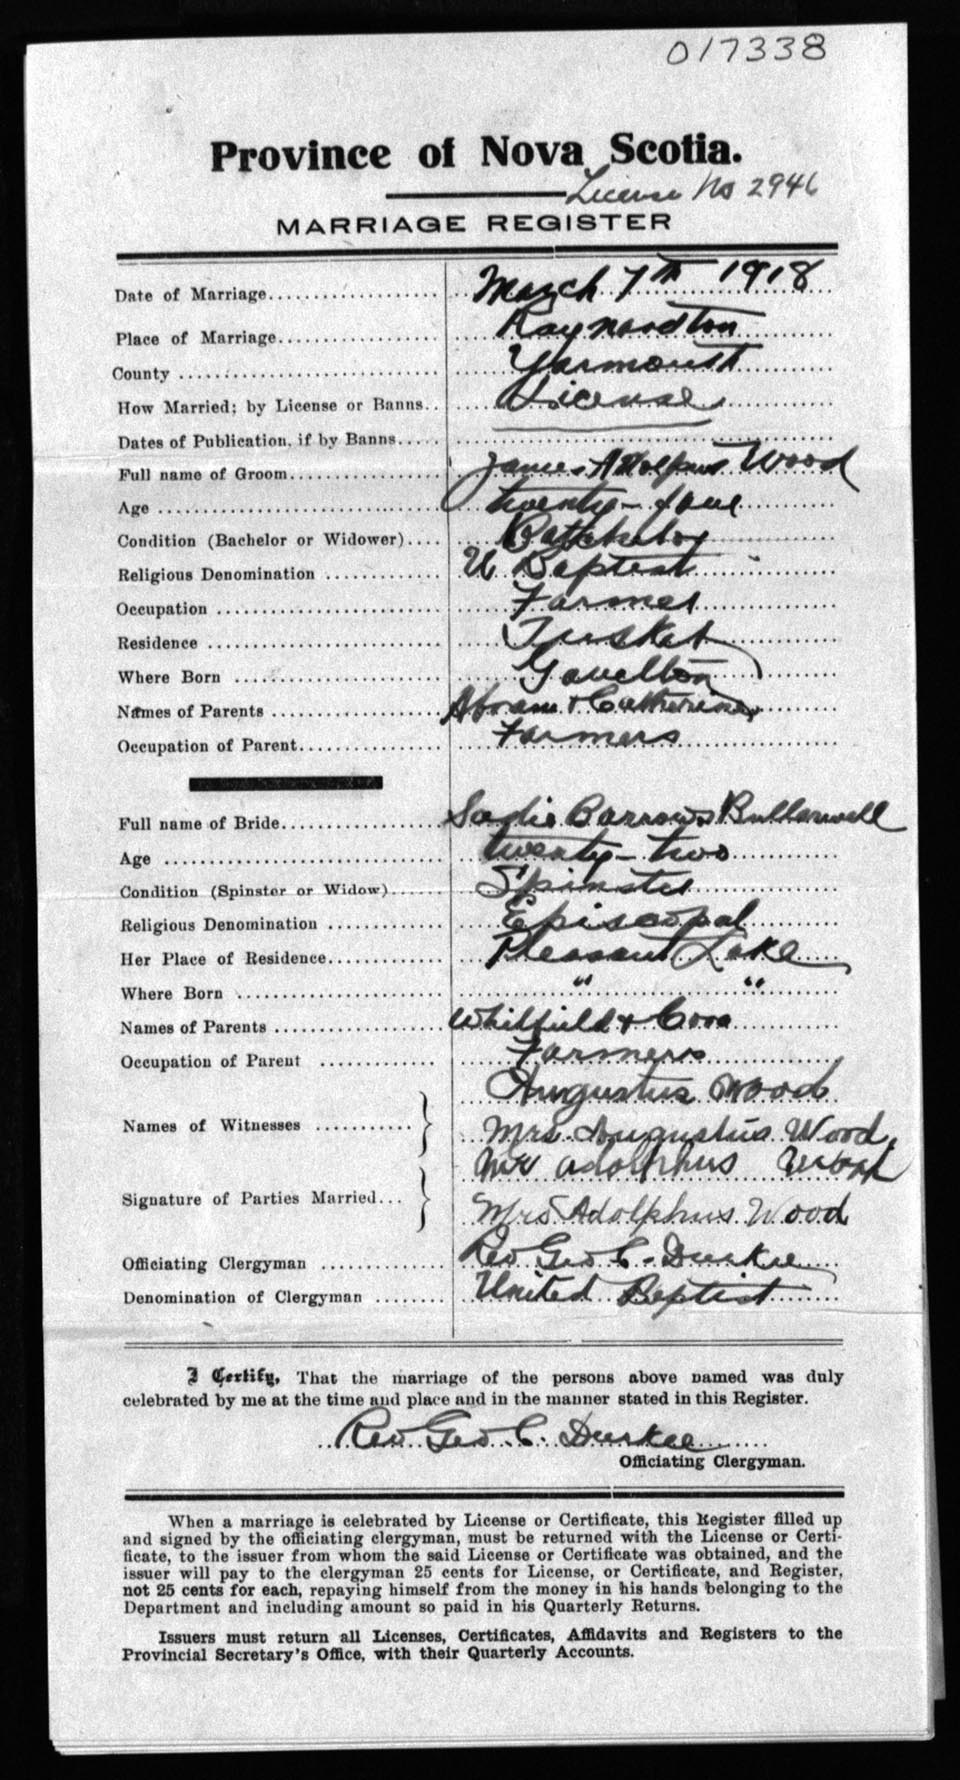 017338
Province of Nova Scotia.
License No 2946
MARRIAGE REGISTER
Date of Marriage March 7th 1918
Place of Marriage Raynardton
County Yarmouth
How Married; by License or Banns License
Dates of Publication, if by Banns
Full name of Groom James Adolphus Wood
Age twenty-four
Condition (Bachelor or Widower)
Religious Denomination U Baptist
Occupation Farmer
Residence Tusket
Where Born Gavelton
Names of Parents Abram & Catherine
Occupation of Parent Farmers
Full name of Bride Sadie Barrows
Age twenty-two
Condition (Spinster or Widow) Spinster
Religious Denomination Episcopal
Her Place of Residence Pleasant Lake
Where Born " "
Names of Parents Whitfield & Cora
Occupation of Parent Farmers
Names of Witnesses Augustus Wood
Mrs. Augustus Wood.
Signature of Parties Married Mr adolphus Wood
Mrs Adolphus Wood
Officiating Clergyman Rev Geo C. Durkee
Denomination of Clergyman United Baptist
I Certify, That the marriage of the persons above named was duly
celebrated by me at the time and place and in the manner stated in this Register.
Rev Geo. C. Durkee
Officiating Clergyman.
When a marriage is celebrated by License or Certificate, this Register filled up
and signed by the officiating clergyman, must be returned with the License or Certi-
ficate, to the issuer from whom the said License or Certificate was obtained, and the
issuer will pay to the clergyman 25 cents for License, or Certificate, and Register,
not 25 cents for each, repaying himself from the money in his hands belonging to the
Department and including amount so paid in his Quarterly Returns.
Issuers must return all Licenses, Certificates, Affidavits and Registers to the
Provincial Secretary's Office, with their Quarterly Accounts.